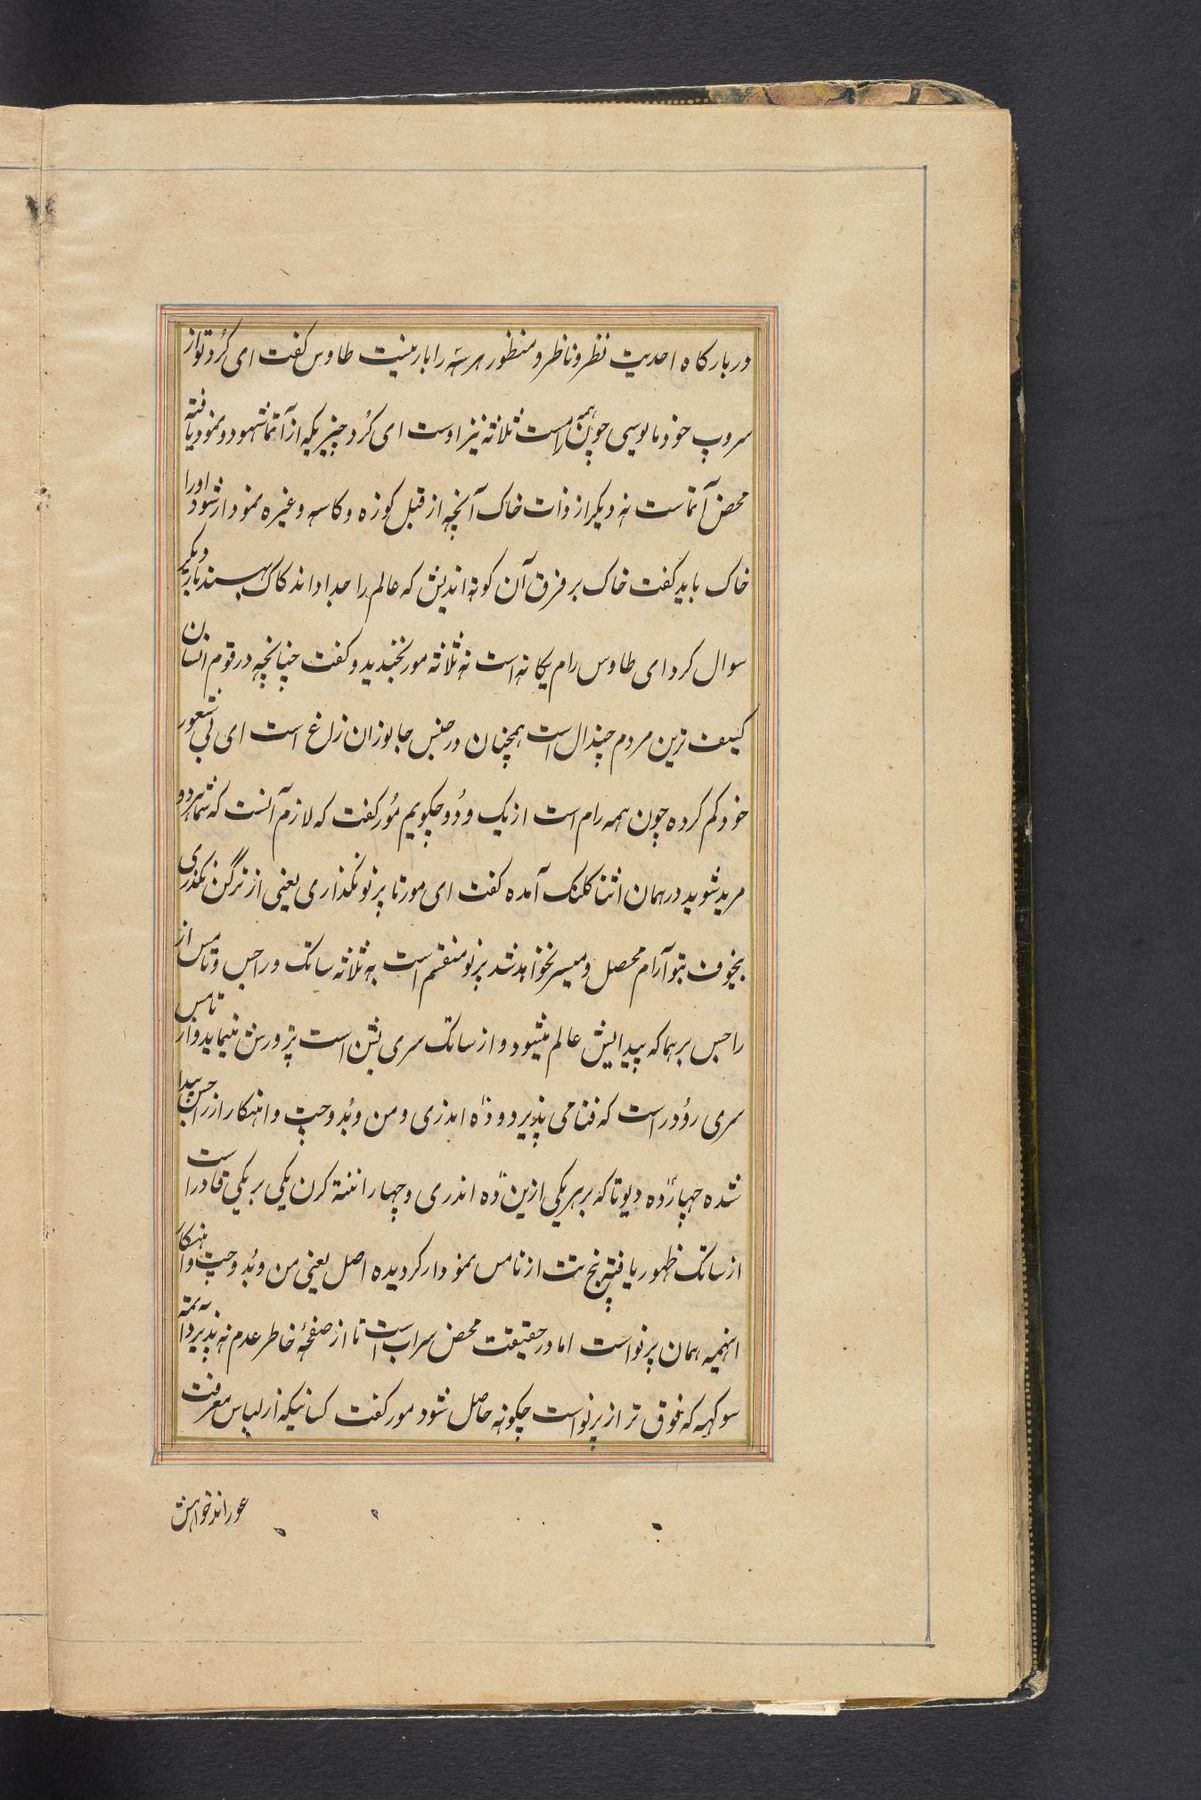 دربارکاه احدیت نظر و ناظر و منظور هر سه را بار نیست طاوس کفت ای کُرد تو از
سروپ خود مایوسی چون همه رامست ثلاثه نیز اوست ای کُرد چیزیکه از آتما شهود و نمود یافته
محض آتماست نه دیکر از ذات خاک آنچه از قبل کوزه و کاسه و غیره نمودار شود او را
خاک باید کفت خاک بر فرق آن کوته اندیش که عالم را جدا داند کاک بهسند بار دیکر
سوال کرد ای طاوس رام یکانه است نه ثلاثه مور بخندید و کفت چنانچه در قوم انسان
کثیف ترین مردم چندال است همچنان در جنس جانوران زاغ است ای بی شعور
خود کم کرده چون همه رام است از یک و دُو چکویم مُور کفت که لازم آنست که شما هر دو
مرید شوید در همان اثنا کلنک آمده کفت ای مور تا پرنو نکذاری یعنی از ترکن نکذری
بیخوف بتو آرام محصل و میسر نخواهد شد پرنو منقسم است به ثلاثه ساتک و راجس و تامس از
راجس برهما که پیدایش عالم میشود و از ساتک سری بشن است پرورش مینماید و از تامس
سری رودر است که فنا می پذیرد و ده اندری و من و بُد و چِت و اهنکار از راجس پیدا
شده چهارده دیوتا که بر هر یکی ازین ده اندری و چهار انتته کرن یکی بر یکی قادر است
از ساتک ظهور یافته پنج تت از تامس نمودار کردیده اصل یعنی من و بُد و چت و اهنکار
اینهمه همان پرنو است اما در حقیقت محض سراب است تا از صفحهٔ خاطر عدم نه پذیرد آتمه
سوکهه که فوق تر از پرنو است چکونه حاصل شود مور کفت کسانیکه از لباس معرفت
عور اند خواهش